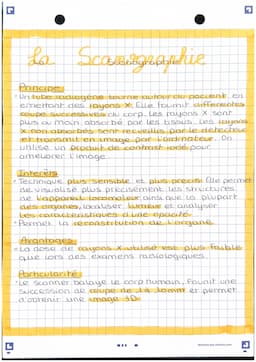 La Scanographie
Principe:
• Un tube radiogène tourne autour du patient en
émettant des rayons X. Elle fournit différentes
coupe successives du corp. Les rayons X sont
plus ou moin absorbé par les tissus. Les rayons
X non absorbés sont recueillis par le détecteur
et transmit en image par l'ordinateur. On
utilise un produit de contrast iodé pour
améliorer l'image.
Intérêts
• Technique plus sensible et plus précis. Elle permet
de visualisé plus précisément les structures
de l'appareil locomoteur ainsi que la plupart
des organes, localiser lumière et analyser
les caractéristiques d'une opacité.
• Permet la reconstitution de l'organe.
Avantages:
• La dose de rayons X utilisé est plus faible
que lors des examens radiologiques.
Particularité:
• Le scanner balaye le corp humain, fournit une
succession de coupe de 1 à 10mm et permet
d'obtenir une image 3D.